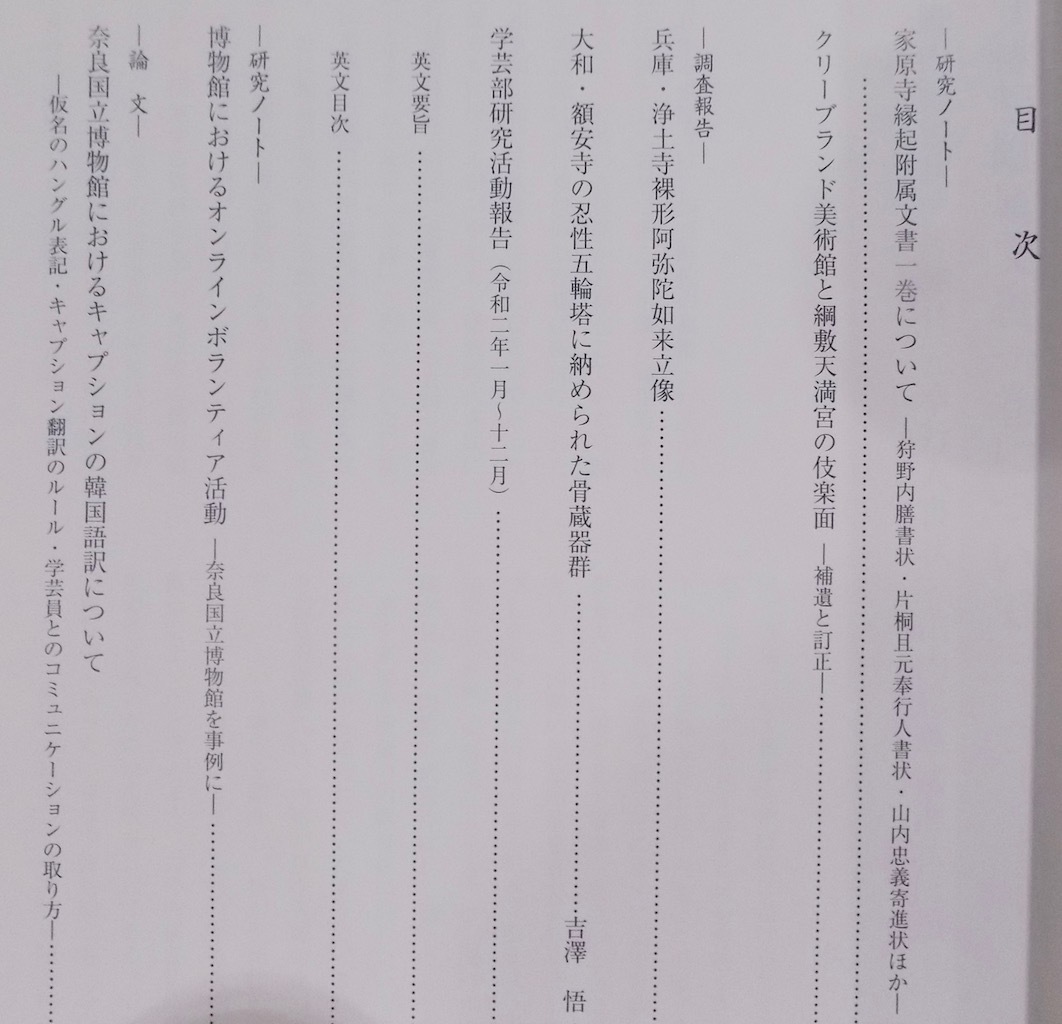 目 次
―研究ノート―
家原寺縁起附属文書一巻について ―狩野内膳書状・片桐且元奉行人書状・山内忠義寄進状ほか―
クリーブランド美術館と綱敷天満宮の伎楽面 ―補遺と訂正―
―調査報告―
兵庫・浄土寺裸形阿弥陀如来立像
大和・額安寺の忍性五輪塔に納められた骨蔵器群 吉澤 悟
学芸部研究活動報告（令和二年一月〜十二月）
英文要旨
英文目次
―研究ノート―
博物館におけるオンラインボランティア活動 ―奈良国立博物館を事例に―
―論 文―
奈良国立博物館におけるキャプションの韓国語訳について
―仮名のハングル表記・キャプション翻訳のルール・学芸員とのコミュニケーションの取り方―